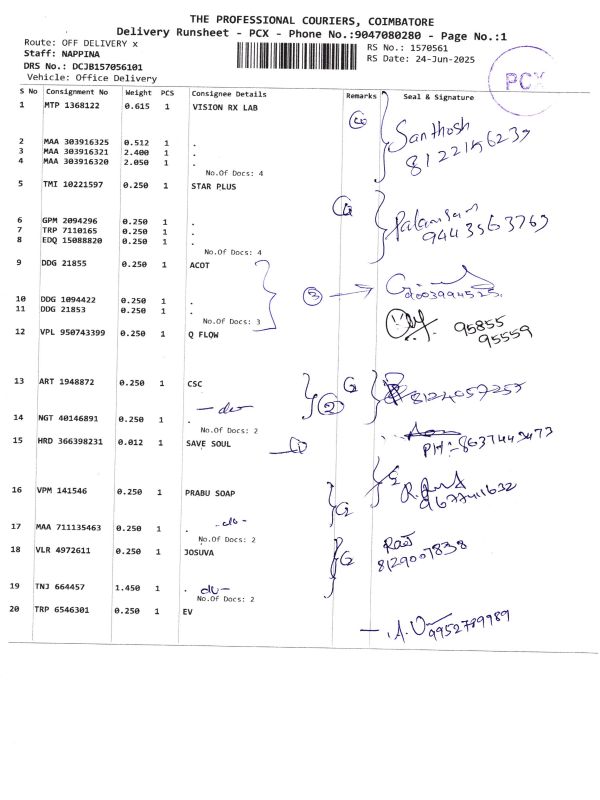 THE PROFESSIONAL COURIERS, COIMBATORE
Delivery Runsheet - PCX - Phone No.:9047080280 - Page No.:1
Route: OFF DELIVERY x
RS No.: 1570561
Staff: NAPPINA
RS Date: 24-Jun-2025
DRS No.: DCJB157056101
Vehicle: Office Delivery
PCX
S No Consignment No Weight PCS Consignee Details Remarks Seal & Signature
1 MTP 1368122 0.615 1 VISION RX LAB
4 Santhosh
2 MAA 303916325 0.512 1 .
3 MAA 303916321 2.400 1 .
4 MAA 303916320 2.050 1 .
No.Of Docs: 4
5 TMI 10221597 0.250 1 STAR PLUS
6 GPM 2094296 0.250 1 .
7 TRP 7110165 0.250 1 .
9443563769
8 EDQ 15088820 0.250 1 .
No.Of Docs: 4
9 DDG 21855 0.250 1 ACOT
3 9003994525
10 DDG 1094422 0.250 1 .
11 DDG 21853 0.250 1 .
No.Of Docs: 3
95855
12 VPL 950743399 0.250 1 Q FLOW
95559
13 ART 1948872 0.250 1 CSC
2 8124057255
-do-
14 NGT 40146891 0.250 1 .
No.Of Docs: 2
15 HRD 366398231 0.012 1 SAVE SOUL
1 PH:- 8637443473
16 VPM 141546 0.250 1 PRABU SOAP
9677411632
-do-
17 MAA 711135463 0.250 1 .
No.Of Docs: 2
18 VLR 4972611 0.250 1 JOSUVA
8129007838
19 TNJ 664457 1.450 1 . -do-
No.Of Docs: 2
20 TRP 6546301 0.250 1 EV
9952789989